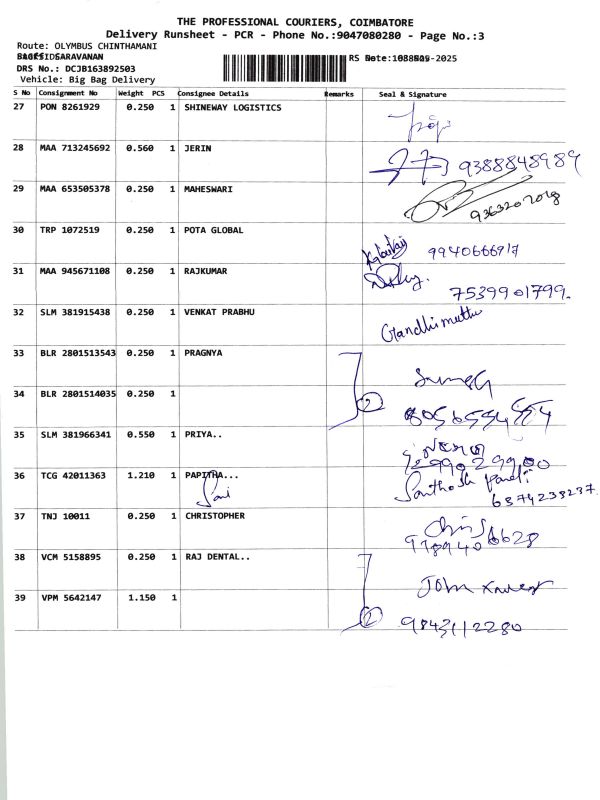 THE PROFESSIONAL COURIERS, COIMBATORE
Delivery Runsheet - PCR - Phone No.:9047080280 - Page No.:3
Route: OLYMBUS CHINTHAMANI
SARAVANAN
DRS No.: DCJB163892503
Vehicle: Big Bag Delivery
RS -2025
S No Consignment No Weight PCS Consignee Details Remarks Seal & Signature
27 PON 8261929 0.250 1 SHINEWAY LOGISTICS
28 MAA 713245692 0.560 1 JERIN 9388848989
29 MAA 653505378 0.250 1 MAHESWARI
30 TRP 1072519 0.250 1 POTA GLOBAL
9940666917
31 MAA 945671108 0.250 1 RAJKUMAR
7539901799.
32 SLM 381915438 0.250 1 VENKAT PRABHU Gandhimuthu
33 BLR 2801513543 0.250 1 PRAGNYA
34 BLR 2801514035 0.250 1 2
35 SLM 381966341 0.550 1 PRIYA..
36 TCG 42011363 1.210 1 PAPITHA...
6374238237
37 TNJ 10011 0.250 1 CHRISTOPHER Chris
38 VCM 5158895 0.250 1 RAJ DENTAL..
John
39 VPM 5642147 1.150 1 2
9843112280